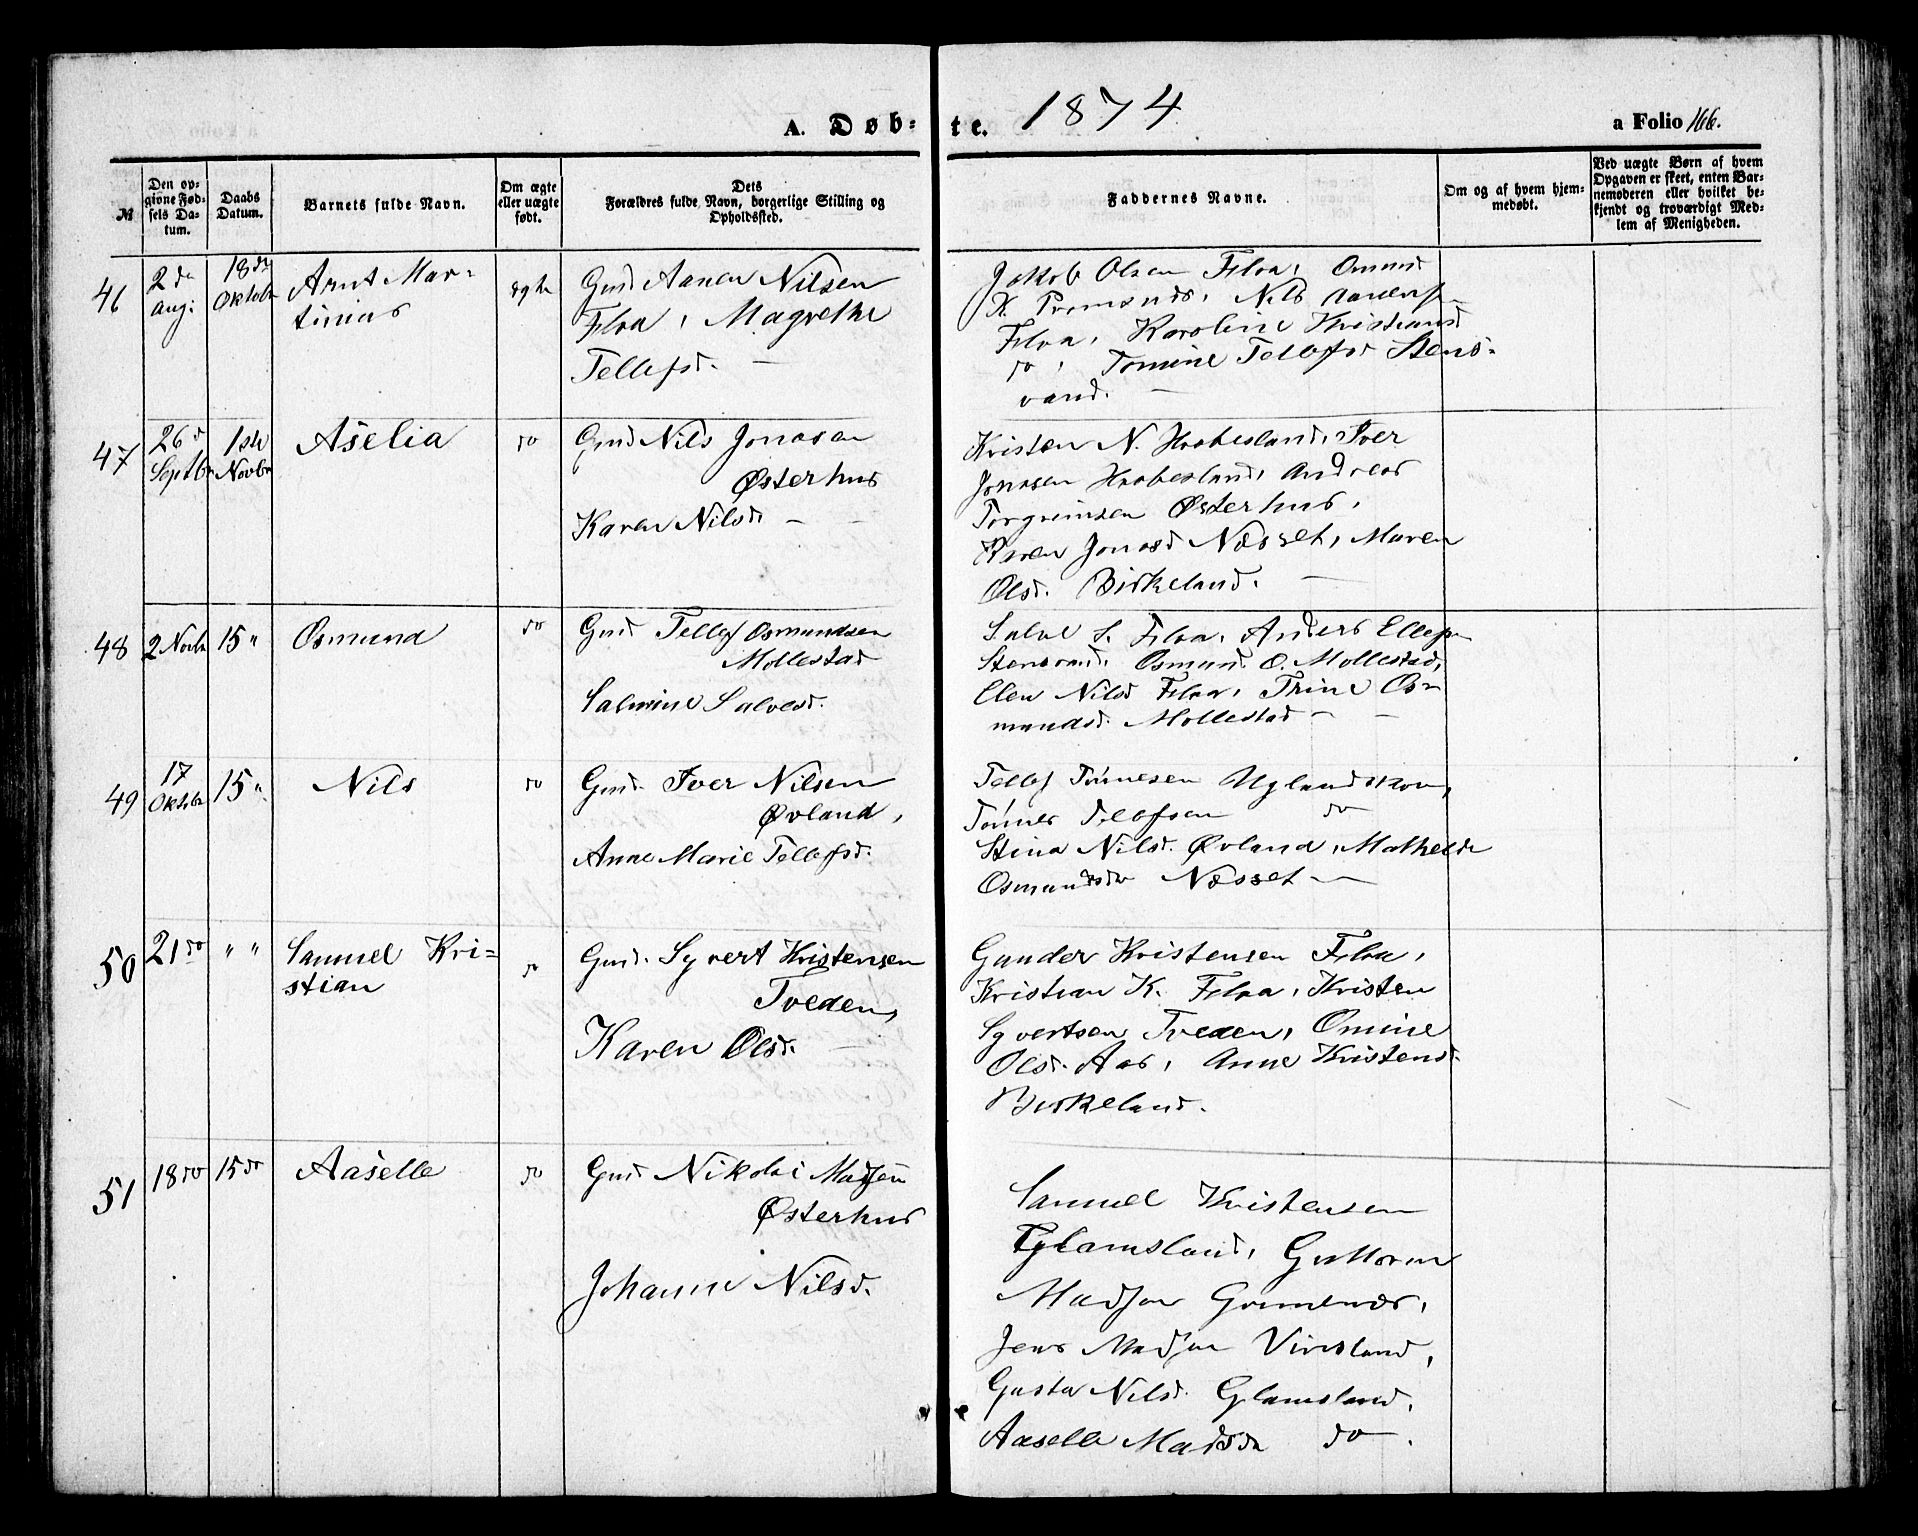 A. Døb= te. 1874 a Folio 166.
№
Den opgivne Fødsels Datum.
Daabs Datum.
Barnets fulde Navn.
Om ægte eller uægte født.
Dets Forældres fulde Navn, borgerlige Stilling og Opholdssted.
Faddernes Navne.
Om og af hvem hjemmedøbt.
Ved uægte Børn af hvem Opgaven er skeet, enten Barnemoderen eller hvilket bekjendt og troværdigt Medlem af Menigheden.
46
2de Aug:
18de Oktobr
Arnt Mar=
tinius
ægte
Gmd Aanen Nilsen
Flaa, Magrethe
Tellefsd. —
Jakob Olsen Flaa, Omund
K. Nils Aanens.
Flaa, Karoline Kristiansd
do, Tomine Tellefsd Stens=
vand. —
47
26de Septbr
1ste Novbr
Aselia
do
Gmd Nils Jonasen
Østerhus
Karen Nilsd. — —
Kristen N. Haabesland, Iver
Jonasen Haabesland, Andreas
Torgrimsen Østerhus,
Karen Jonasd Næsset, Maren
Olsd. Birkeland. —
48
2 Novbr
15 "
Osmund
do
Gmd Tellef Osmundsen
Mollestad
Salmine Salvesd.
Salve S. Flaa, Anders Ellefsn
Stensvand, Osmund O. Mollestad,
Elen Nilsd Flaa, Trine Os=
mundsd. Mollestad — —
49
17 Oktobr
15 "
Nils
do
Gmd. Iver Nilsen
Øvland,
Anne Marie Tellefsd.
Tellef Tønnesen Uglandskon,
Tønnes Tellefsen do
Stina Nilsd. Øvland, Mathelde
Osmundsdr Næsset —
50
21 do
" "
Samuel Kri=
stian
do
Gmd. Syvert Kristensen
Tveden,
Karen Olsd. —
Gunder Kristensen Flaa,
Kristian K. Flaa, Kristen
Syvertsen Tveden, Omine
Olsd. Aas, Anne Kristensd.
Birkeland.
51
18 do
15 do
Aaselle
do
Gmd Nikolai Madsen
Østerhus
Johanne Nilsd.
Samuel Kristensen
Glamsland, Guttorm
Madsen Grimenæs,
Jens Madsen Vinsland,
Gusta Nilsd. Glamsland,
Aaselle Madsdr do.